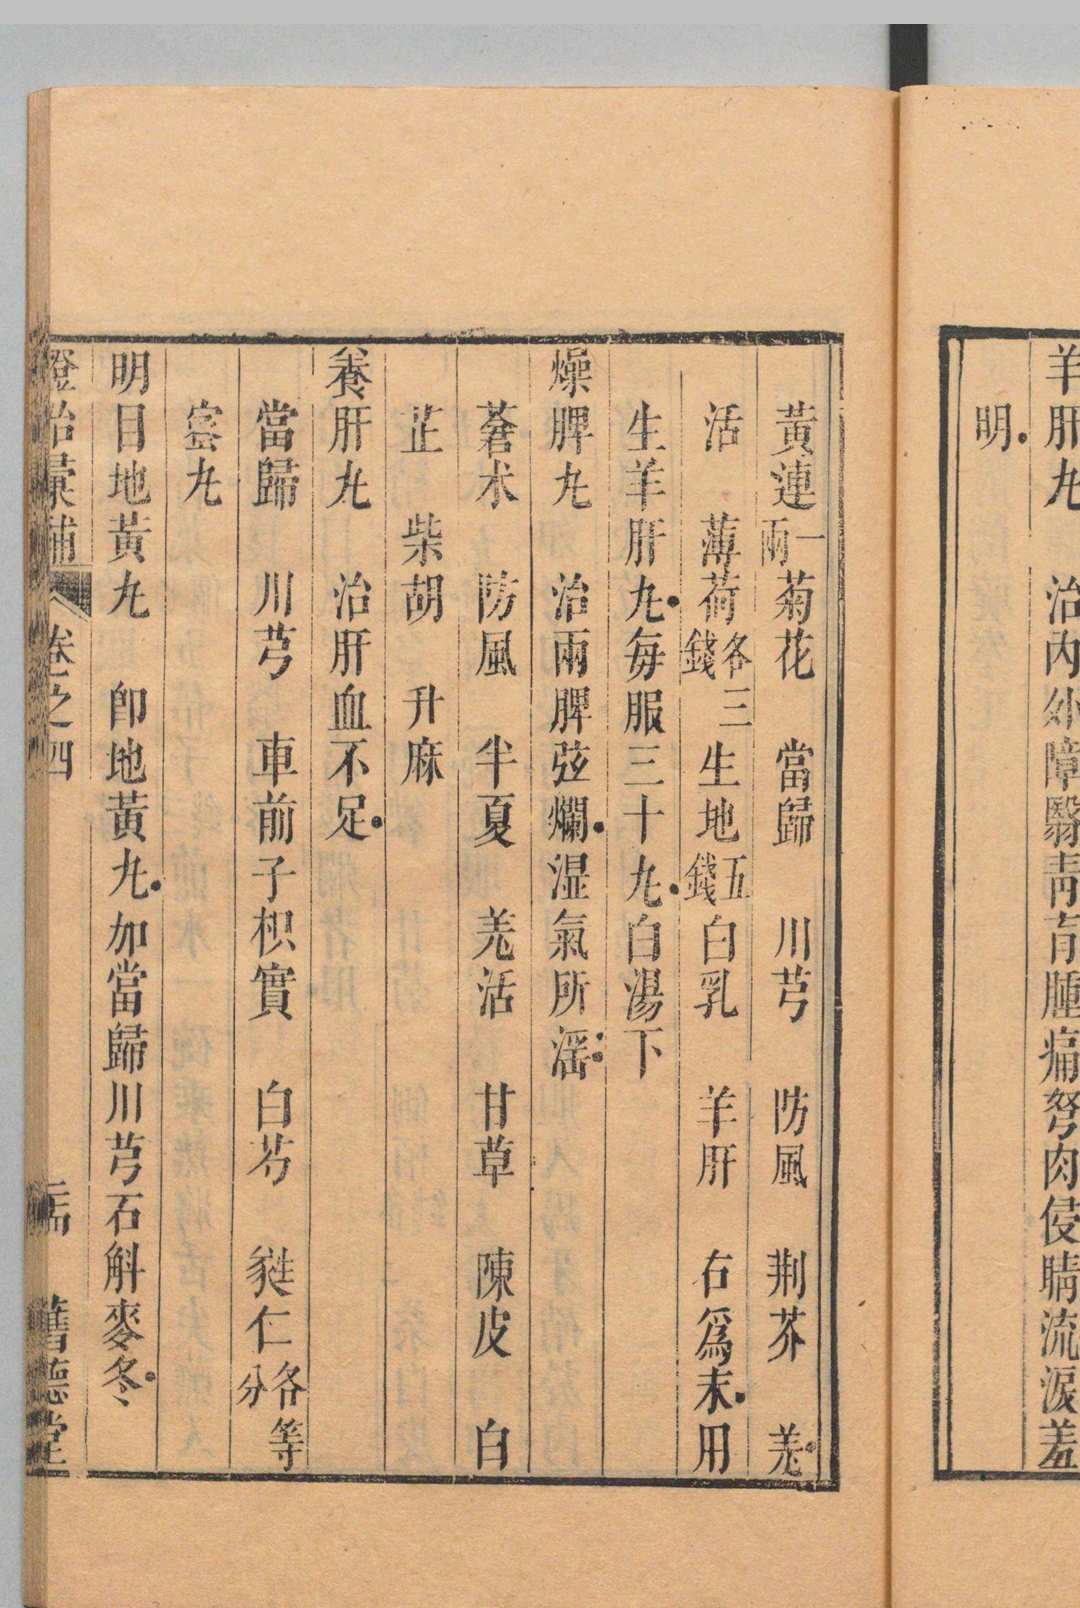 羊肝丸　治內外障翳靑盲腫痛努肉侵睛流淚羞
明
黃連一兩菊花　當歸　川芎　防風　荆芥　羗
活　薄荷各三錢生地五錢白乳　羊肝　右爲末用
生羊肝丸每服三十丸白湯下
燥脾丸　治兩脾弦爛湿氣所滛
蒼朮　防風　半夏　羗活　甘草　陳皮　白
芷　柴胡　升麻
養肝丸　治肝血不足
當歸　川芎　車前子枳實　白芍　蕤仁各等分
蜜丸
明目地黃丸　卽地黃丸加當歸川芎石斛麥冬
證治彙補　卷之四　舊德堂